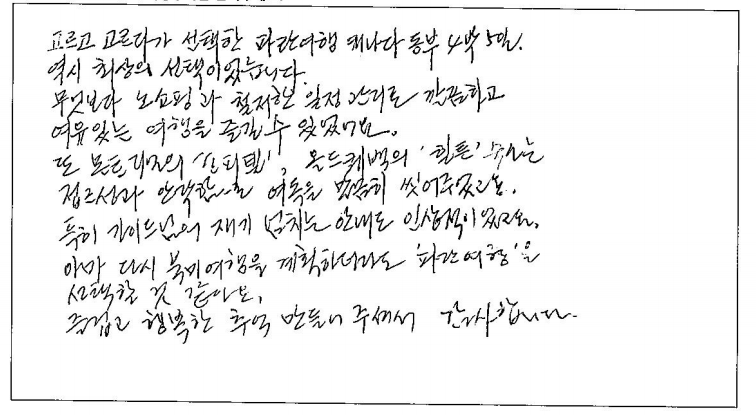 고르고 고르다가 선택한 파란여행 캐나다 동부 4박 5일.
역시 최상의 선택이었습니다.
무엇보다 노쇼핑과 철저한 일정 관리로 깔끔하고
여유있는 여행을 즐길 수 있었어요.
또 몬트리올의 '샴페트', 올드퀘백의 '힐튼' 숙소는
접근성과 안락함으로 여독을 말끔히 씻어주었고요.
특히 가이드님의 재기 넘치는 안내도 인상적이었고요.
아마 다시 북미여행을 계획하더라도 '파란여행'을
선택할 것 같아요.
즐겁고 행복한 추억 만들어 주셔서 감사합니다.